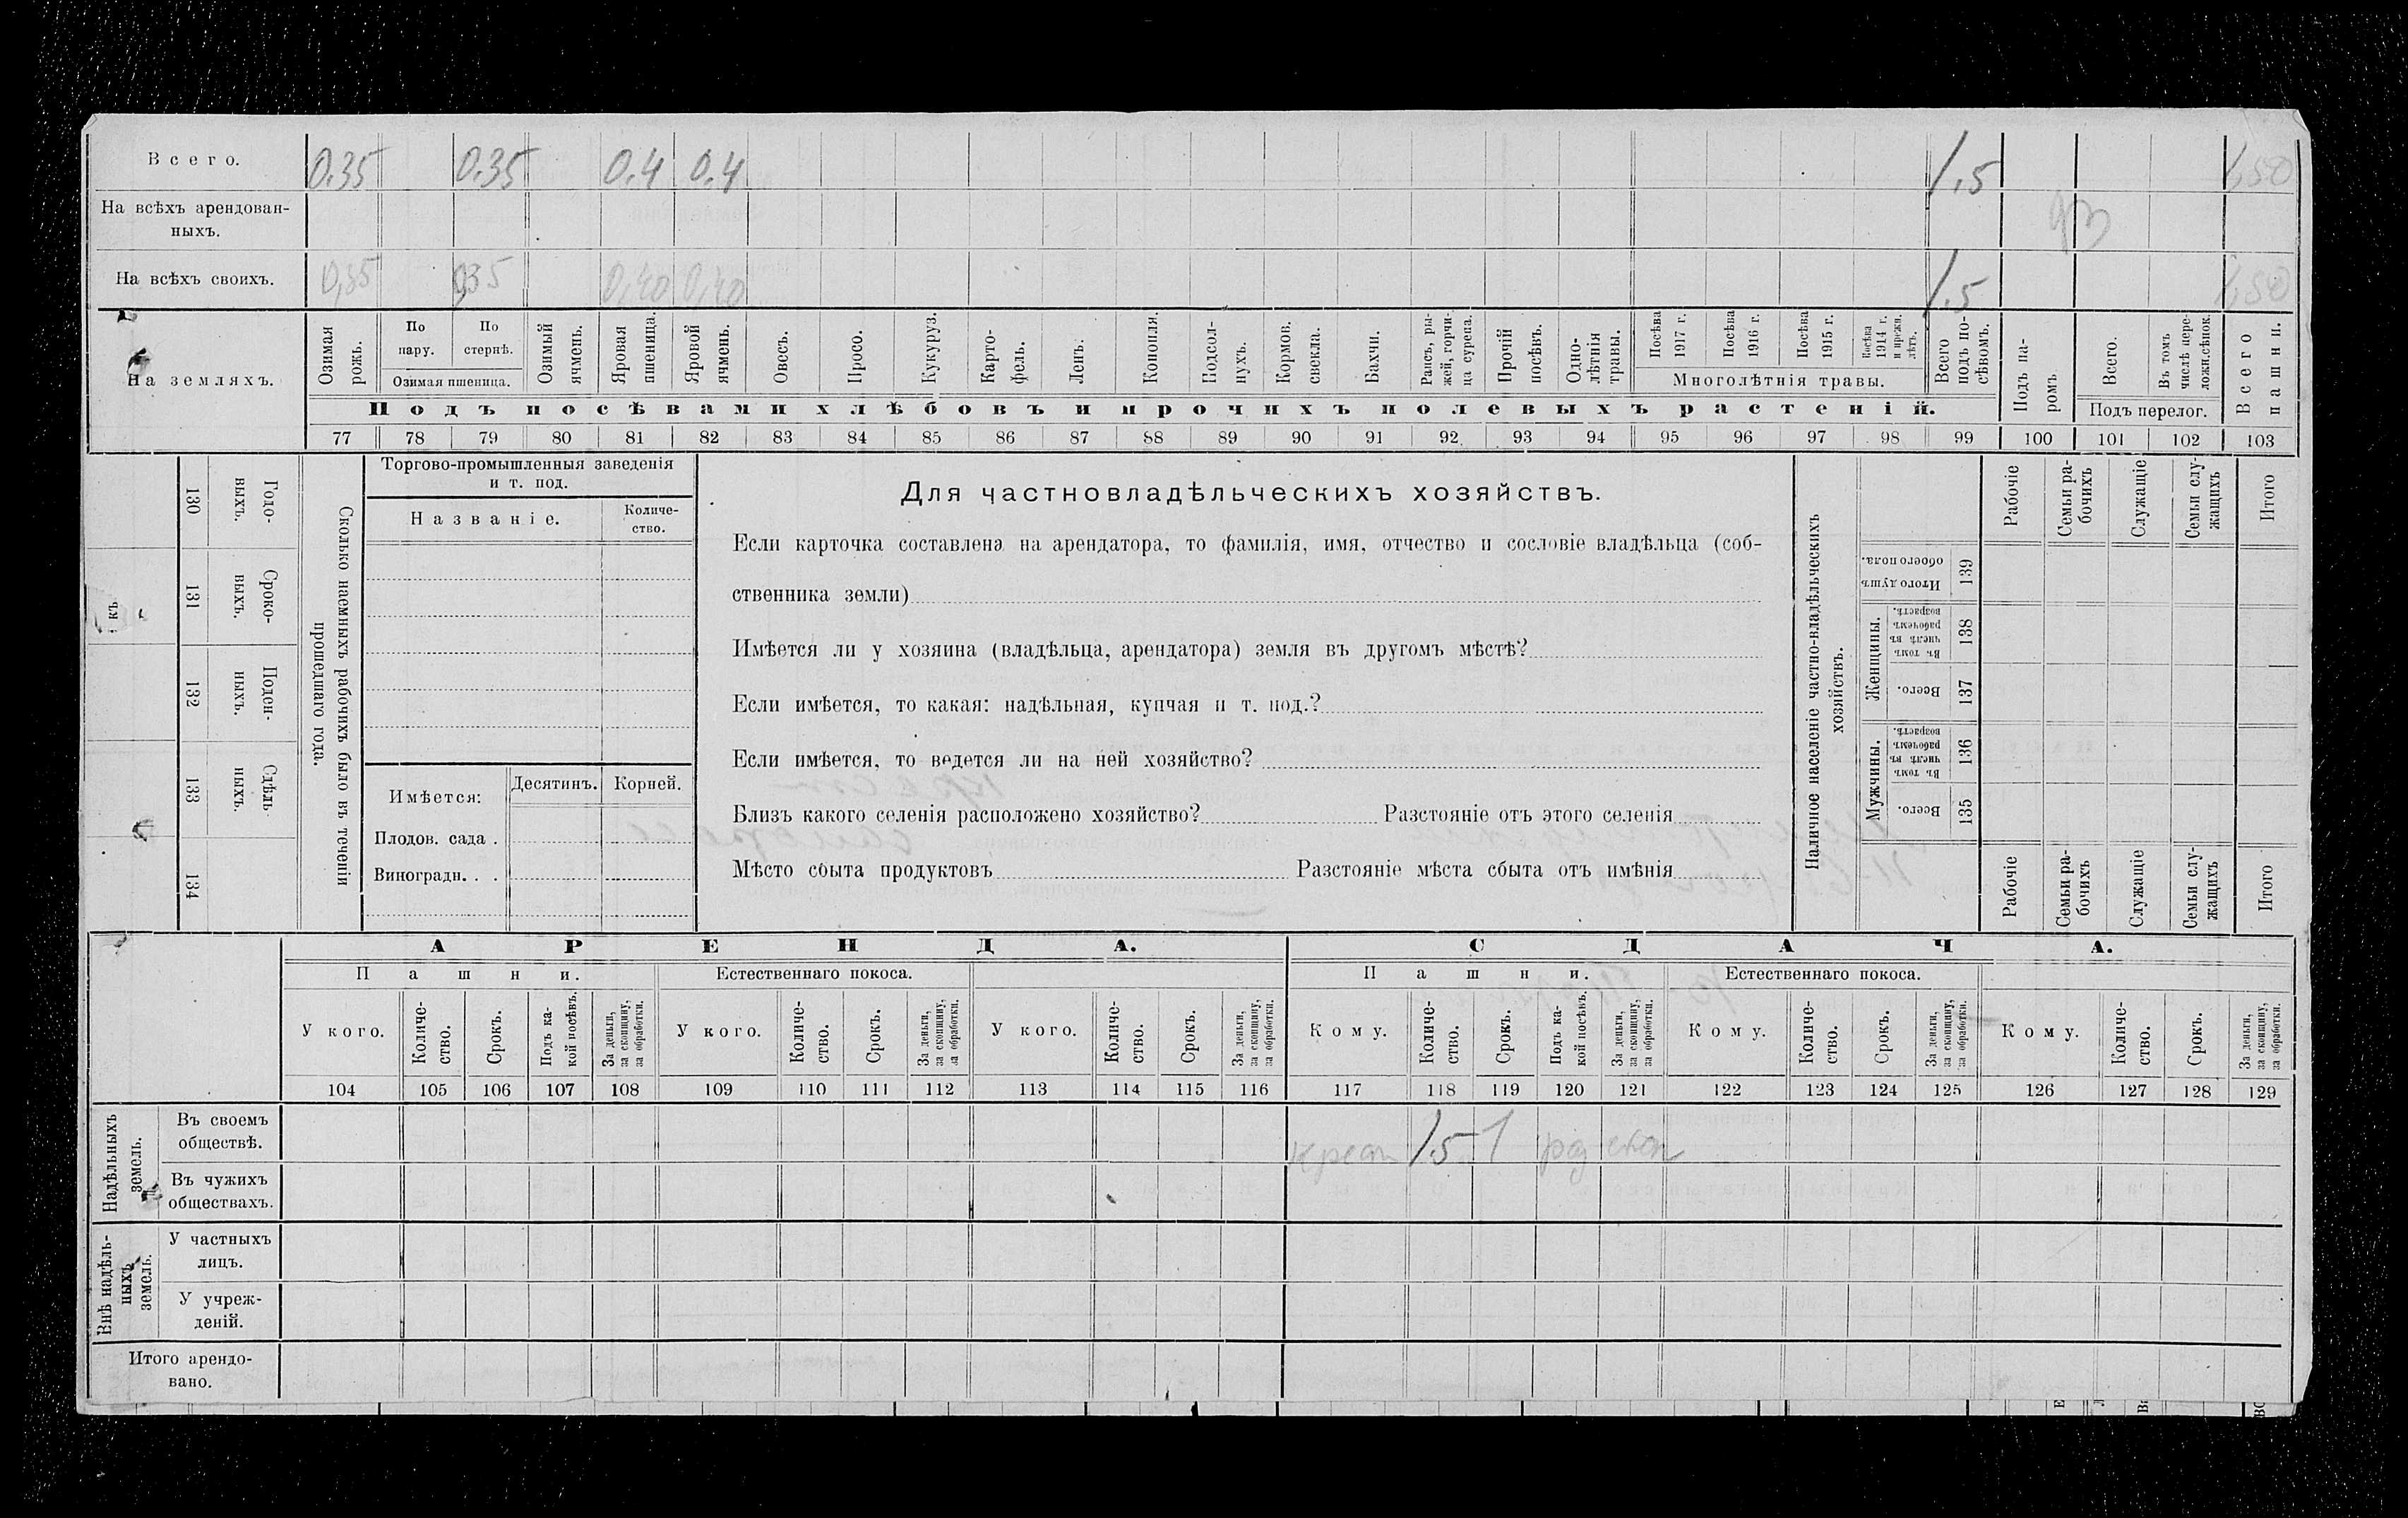 Всего. 0.35 0.35 0.4 0.4 1.5 1,50
На всѣхъ арендован-
ныхъ.
На всѣхъ своихъ. 0,35 0,35 0,40 0,40 1.5 1,50
На земляхъ.
Озимая рожь.
По пару.
По стернѣ.
Озимая пшеница.
Озимый ячмень.
Яровая пшеница.
Яровой ячмень.
Овесъ.
Просо.
Кукуруз.
Карто-
фель.
Ленъ.
Конопля.
Подсол-
нухъ.
Кормов. свекла.
Бахчи.
Рапсъ, ры-
жей, горчи-
ца сурепа.
Прочій посѣвъ.
Одно-
лѣтнія травы.
Посѣва 1917 г.
Посѣва 1916 г.
Посѣва 1915 г.
Посѣва 1914 г. и прежн. лѣтъ.
Многолѣтнія травы.
Всего подъ по-
сѣвомъ.
Подъ па-
ромъ.
Всего.
Въ томъ числѣ пере-
лож.сѣнок.
Подъ перелог.
Всего пашни.
Подъ посѣвами хлѣбовъ и прочихъ полевыхъ растеній.
77 78 79 80 81 82 83 84 85 86 87 88 89 90 91 92 93 94 95 96 97 98 99 100 101 102 103
Сколько наемныхъ рабочихъ было въ теченіи
прошедшаго года.
Годо-
выхъ.
130
Сроко-
выхъ.
131
Поден-
ныхъ.
132
Сдѣль-
ныхъ.
133
134
къ
Торгово-промышленныя заведенія
и т. под.
Названіе.
Количе-
ство.
Имѣется:
Десятинъ. Корней.
Плодов. сада .
Виноградн. . .
Для частновладѣльческихъ хозяйствъ.
Если карточка составлена на арендатора, то фамилія, имя, отчество и сословіе владѣльца (соб-
ственника земли)
Имѣется ли у хозяина (владѣльца, арендатора) земля въ другомъ мѣстѣ?
Если имѣется, то какая: надѣльная, купчая и т. под.?
Если имѣется, то ведется ли на ней хозяйство?
Близъ какого селенія расположено хозяйство? Разстояніе отъ этого селенія
Мѣсто сбыта продуктовъ Разстояніе мѣста сбыта отъ имѣнія
Наличное населеніе частно-владѣльческихъ
хозяйствъ.
Рабочіе
Семьи ра-
бочихъ
Служащіе
Семьи слу-
жащихъ
Итого
Итого душъ обоего пола.
139
Женщины.
Въ томъ числѣ въ рабочемъ возрастѣ.
138
Всего.
137
Мужчины.
Въ томъ числѣ въ рабочемъ возрастѣ.
136
Всего.
135
Рабочіе
Семьи ра-
бочихъ
Служащіе
Семьи слу-
жащихъ
Итого
АРЕНДА. СДАЧА.
Пашни. Естественнаго покоса. Пашни. Естественнаго покоса.
У кого.
Количе-
ство.
Срокъ.
Подъ ка-
кой посѣвъ.
За деньги,
за скопщину,
за обработки.
У кого.
Количе-
ство.
Срокъ.
За деньги,
за скопщину,
за обработки.
У кого.
Количе-
ство.
Срокъ.
За деньги,
за скопщину,
за обработки.
Кому.
Количе-
ство.
Срокъ.
Подъ ка-
кой посѣвъ.
За деньги,
за скопщину,
за обработки.
Кому.
Количе-
ство.
Срокъ.
За деньги,
за скопщину,
за обработки.
Кому.
Количе-
ство.
Срокъ.
За деньги,
за скопщину,
за обработки.
104 105 106 107 108 109 110 111 112 113 114 115 116 117 118 119 120 121 122 123 124 125 126 127 128 129
Надѣльныхъ
земель.
Въ своемъ
обществѣ.
крест 1.5 1 скоп
Въ чужихъ
обществахъ.
Внѣ надѣль-
ныхъ
земель.
У частныхъ
лицъ.
У учреж-
деній.
Итого арендо-
вано.